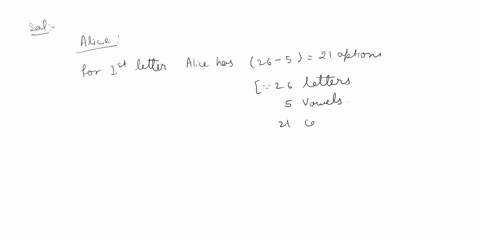 Sol:-
Alice:
for 1st letter Alice has (26-5) = 21 options
[∵ 26 letters
5 vowels.
21 Co